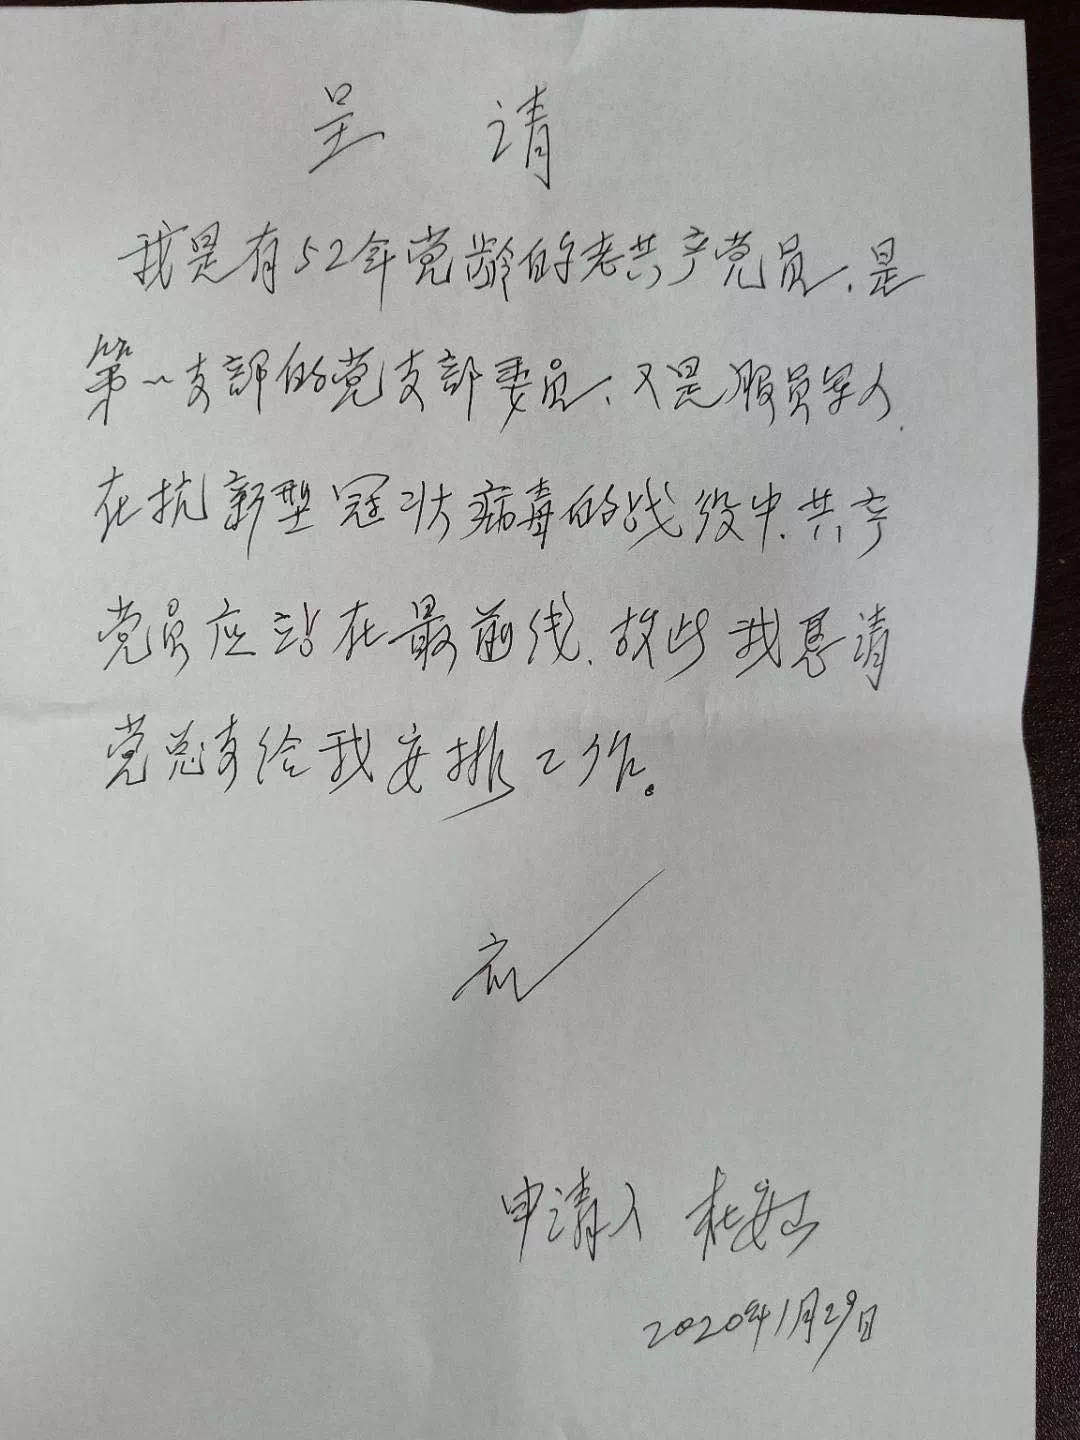 呈 请
我是有52年党龄的老共产党员、是
第一支部的党支部委员、又是服员军人.
在抗新型冠状病毒的战役中.共产
党员应站在最前线.故此我恳请
党总支给我安排工作。
申请人
2020年1月29日